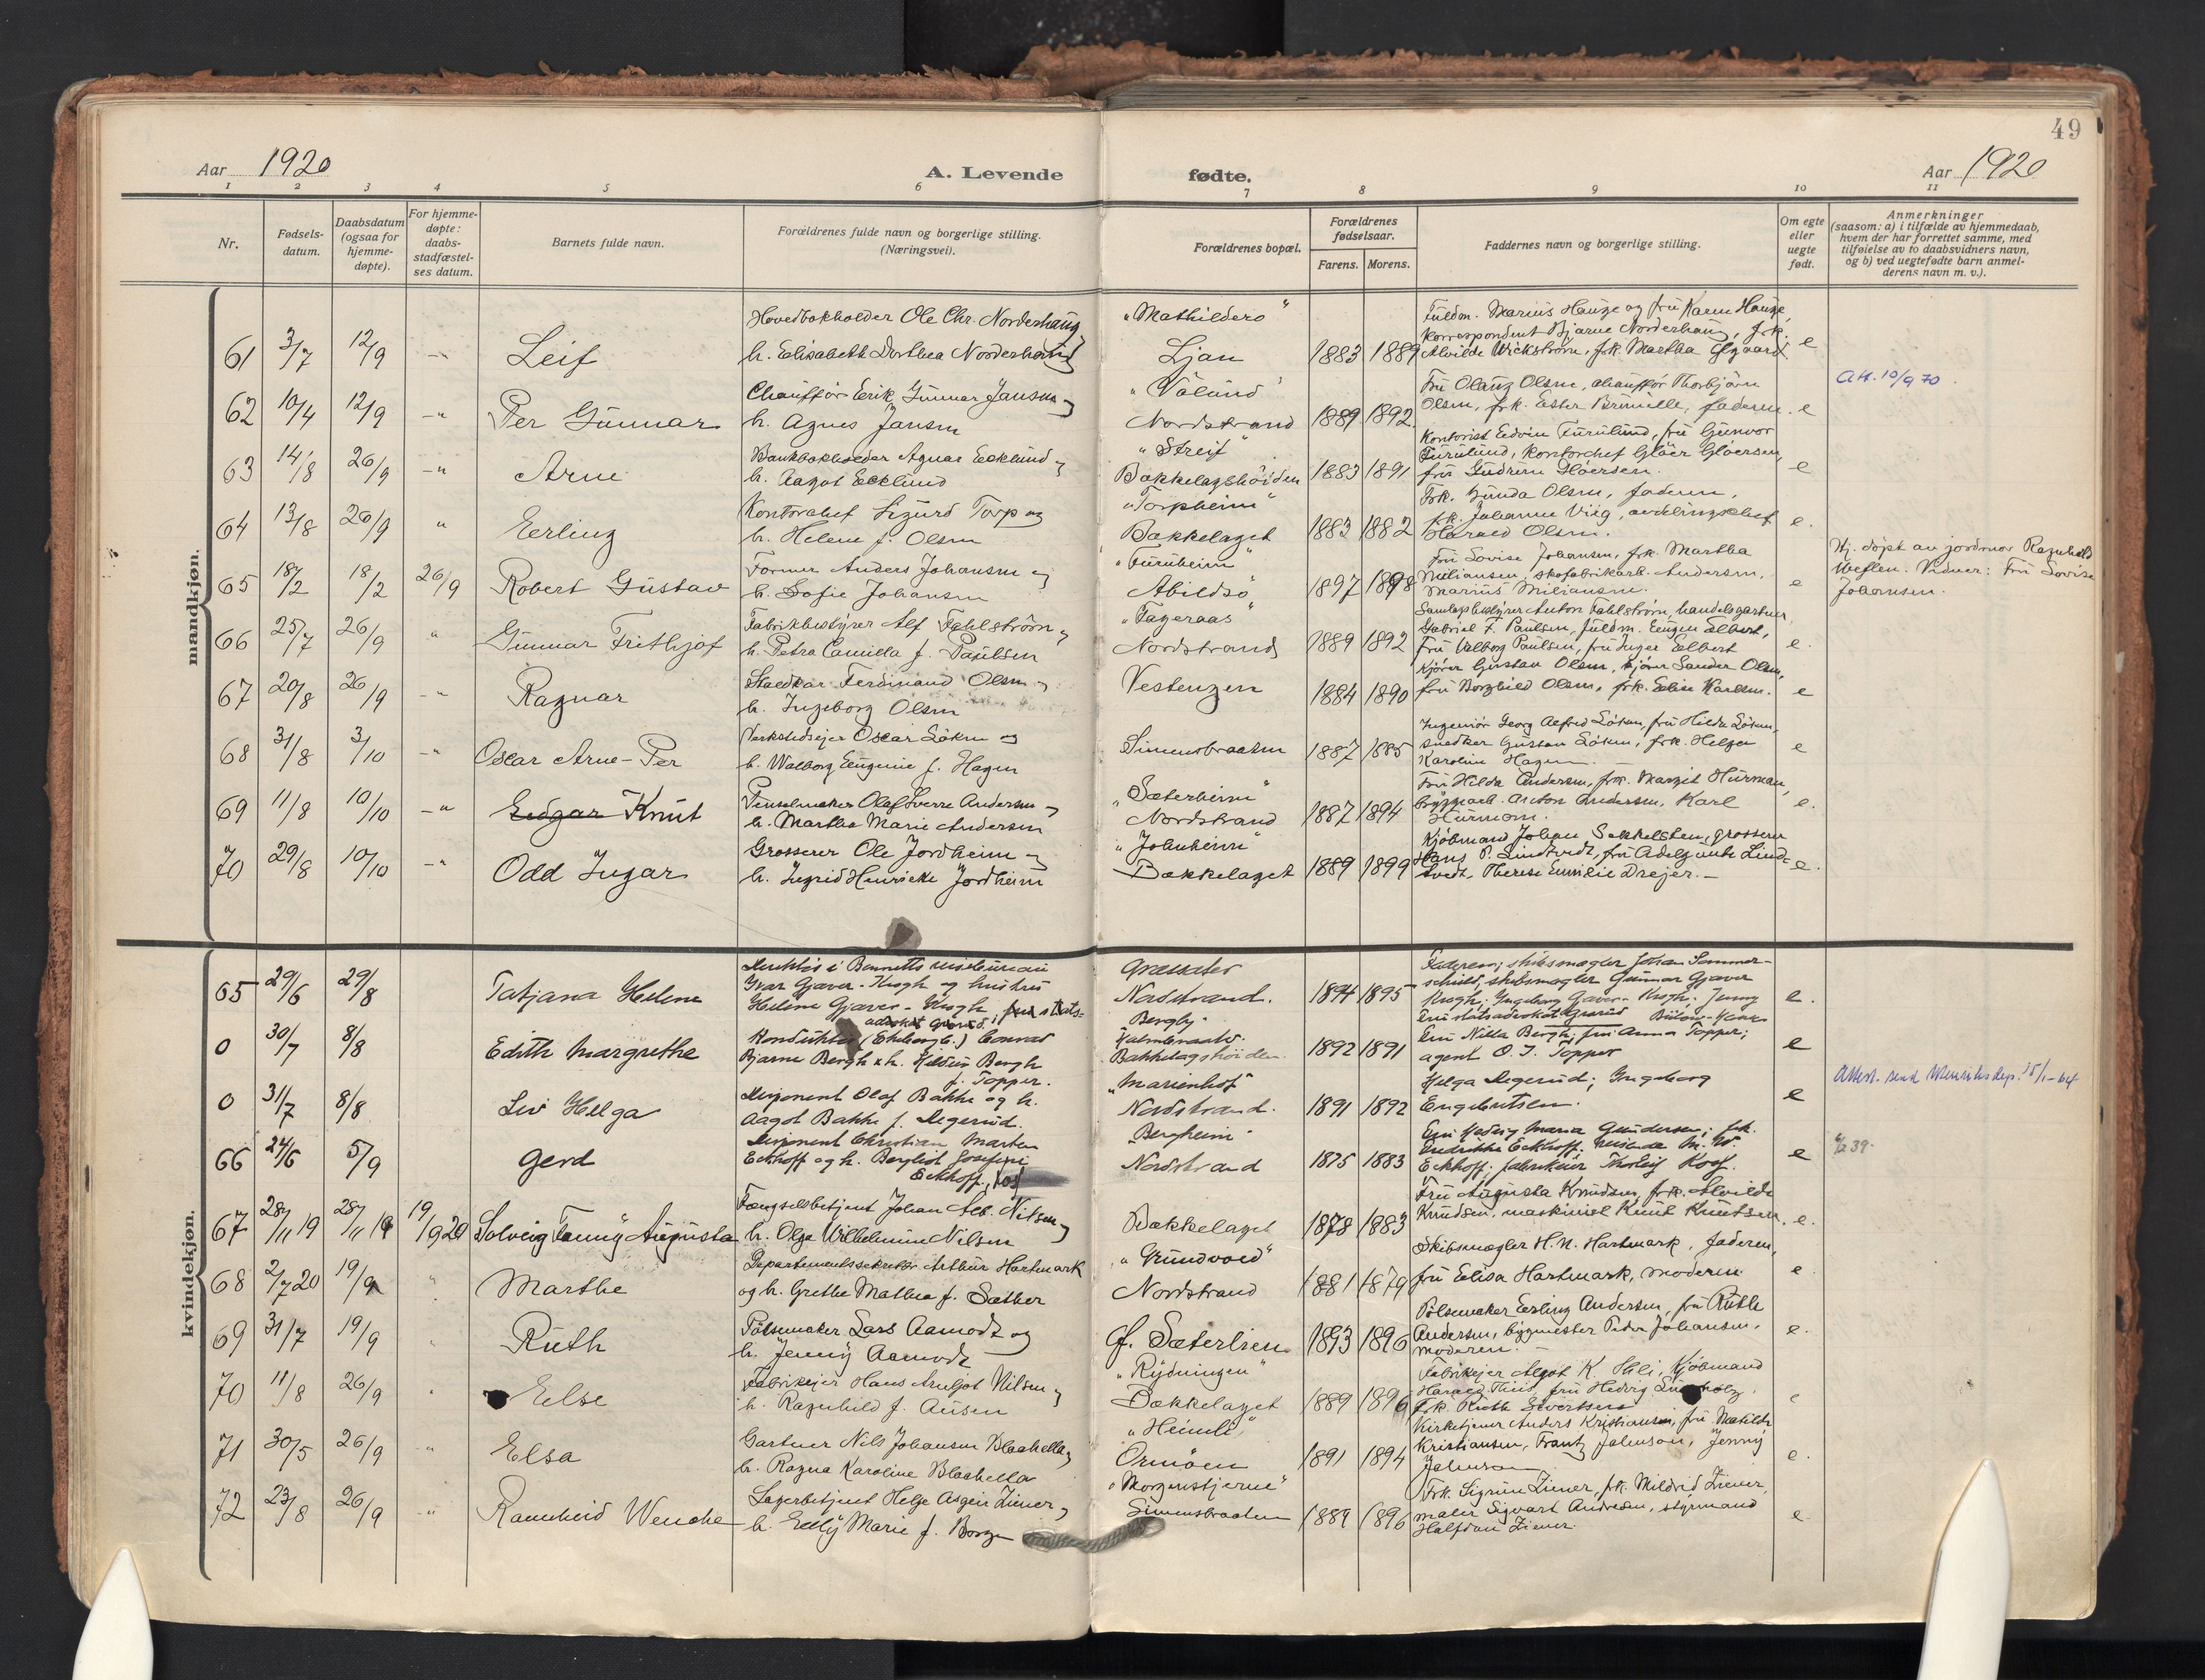 49
Aar 1920
A. Levende
fødte.
Aar 1920
1 2 3 4 5 6 7 8 9 10 11
Nr.
Fødsels-
datum.
Daabsdatum
(ogsaa for
hjemme-
døpte).
For hjemme-
døpte:
daabs-
stadfæstel-
ses datum.
Barnets fulde navn.
Forældrenes fulde navn og borgerlige stilling.
(Næringsvei).
Forældrenes bopæl.
Forældrenes
fødselsaar.
Farens. Morens.
Faddernes navn og borgerlige stilling.
Om egte
eller
uegte
født.
Anmerkninger
(saasom: a) i tilfælde av hjemmedaab,
hvem der har forrettet samme, med
tilføielse av to daabsvidners navn,
og b) ved uegtefødte barn anmel-
derens navn m. v.).
mandkjøn.
61 3/7 12/9 -"- Leif
Hovedbokholder Ole Chr. Norderhaug
h. Elisabeth Dorthea Norderhaug
"Mathildero"
Ljan 1883 1889
Fuldm. Marius Hauge og fru Karen Hauge,
korrespondent Bjarne Norderhaug, frk.
Alvilde Wickstrøm, frk. Martha
e
62 10/4 12/9 -"- Per Gunnar
Chauffør Erik Gunnar Jansen og
h. Agnes Jansen
"Vålund"
Nordstrand 1889 1892
Fru Olaug Olsen, chauffør Thorbjørn
Olsen, frk. Ester, faderen.
e
Att. 10/9 70.
63 14/8 26/9 -"- Arne
Bankbokholder Agnar Ecklund og
h. Aagot Ecklund
"Streif"
Bækkelagshøiden 1883 1891
Kontorist Edvin Furulund, fru Gunvor
Furulund, kontorchef Gløer Gløersen,
fru Gudrun Gløersen.
e
64 13/8 26/9 " Erling
Kontorchef Sigurd Torp og
h. Helene f. Olsen
"Torpheim"
Bækkelaget 1883 1882
Frk. Gunda Olsen, faderen,
frk. Johanne Viig, avdelingschef
Harald Olsen.
e.
65 18/2 18/2 26/9 Robert Gustav
Former Anders Johansen og
h. Sofie Johansen
"Furuheim"
Abildsø 1897 1898
Fru Lovise Johansen, frk. Martha
Miliansen, skofabrikarb. Andersen,
Marius Miliansen.
e
Hj. døpt av jordmor Ragnhild
Weflen. Vidner: Fru Lovise
Johansen.
66 25/7 26/9 " Gunnar Frithjof
Fabrikbestyrer Alf Fahlstrøm og
h. Petra Camilla f. Paulsen
"Fageraas"
Nordstrand 1889 1892
Samlagsbestyrer Anton Fahlstrøm, handelsgartner
Gabriel F. Paulsen, fuldm. Eugen Elbert,
fru Valborg Paulsen, fru Inger Elbert
e.
67 20/8 26/9 -"- Ragnar
Staldkar Ferdinand Olsen og
h. Ingeborg Olsen
Vestengen 1884 1890
Kjører Gustav Olsen, kjører Sander Olsen,
fru Borghild Olsen, frk. Elise Karlsen.
e
68 31/8 3/10 -"- Oscar Arne-Per
Verkstedseier Oscar Løken og
h. Walborg Eugenie f. Hagen
Simensbraaten 1887 1885
Ingeniør Georg Alfred Løken, fru Hilda Løken,
snedker Gustav Løken, frk. Helga
Karoline Hagen.
e
69 11/8 10/10 -"- Edgar Knut
Penselmaker Olaf Sverre Andersen og
h. Martha Marie Andersen
"Sæterheim"
Nordstrand 1887 1894
Fru Hilda Andersen, frk. Margit Hurman,
bryggearb. Anton Andersen, Karl
Hurman.
e.
70 29/8 10/10 -"- Odd Ingar
Grosserer Ole Jordheim og
h. Ingrid Henrieke Jordheim
"Johnheim"
Bækkelaget 1889 1899
Kjøbmand Johan Sakkelsten, grosserer
Hans P. Lindtvedt, fru Adelgunde Lind-
tvedt, Therese Emilie Drejer.
e.
kvindekjøn.
65 29/6 29/8 Tatjana Helene
Direktør i Bennetts reisebureau
Ivar Gjæver-Krogh og hustru
Helene Gjæver-Krogh, fru stats-
advokat Grørud.
Grøssæter
Nordstrand. 1894 1895
Faderen; skibsmægler Johan Sommer-
schield, skibsmægler Gunnar Gjæver
Krogh; Ingeborg Gjæver-Krogh; Jenny
e.
0 30/7 8/8 Edith Margrethe
Konduktør (Ekeberg b.) Conrad
Bjarne Bergh & h. Hildur Bergh
f. Topper.
Bergly
Bækkelagshöiden 1892 1891
Fru Nilla Bergh; fru Anna Topper;
agent O. J. Topper
e
0 31/7 8/8 Liv Helga
Disponent Olaf Bakke og h.
Aagot Bakke f. Degerud.
"Marienhof"
Nordstrand. 1891 1892
Helga Degerud; Ingeborg
Engebretsen.
e
66 24/6 5/9 Gerd
Disponent Christian Marten
Eckhoff og h. Bergliot Josefine
Eckhoff, Kos
"Bergheim"
Nordstrand 1875 1883
Fru Hedvig Maria Gundersen; frk.
Endrikke Eckhoff, reisende M. W.
Eckhoff; fabrikeier Thorleif Koss.
e
67 28/11 19 28/11 19 19/9 20 Solveig Fanny Augusta
Fængselsbetjent Johan Alb. Nilsen og
h. Olga Wilhelmine Nilsen
Bækkelaget 1878 1883
Fru Augusta Knudsen, frk. Alvilde
Knudsen, maskinist Knut Knutsen.
e.
68 2/7 20 19/9 " Marthe
Departementssekretær Arthur Hartmark
og h. Grethe Mathea f. Sæther
"Grundvold"
Nordstrand 1881 1879
Skibsmægler H. N. Hartmark, faderen,
fru Elisa Hartmark, moderen.
e
69 31/7 19/9 " Ruth
Pølsemaker Lars Aamodt og
h. Jenny Aamodt
Gf. Sæterlien 1893 1896
Pølsemaker Erling Andersen, fru Ruth
Andersen, bygmester Peder Johansen,
moderen.
e.
70 11/8 26/9 " Else
Fabrikeier Hans Arnljot Nilsen og
h. Ragnhild f. Ausen
"Rydningen"
Bækkelaget 1889 1896
Fabrikeier Algot K. Hili, Kjøbmand
Harald, fru Hedvig
frk. Ruth Sivertsen
e
71 30/5 26/9 -"- Elsa
Gartner Nils Johansen Blaahella og
h. Ragna Karoline Blaahella
"Heimli"
Ormøen 1891 1894
Kirketjener Anders Kristiansen, fru Matilde
Kristiansen, Frantz Johnson, Jenny
Johnson
e.
72 23/8 26/9 -"- Ranheid Wenche
Lagerbetjent Helge Asgeir Ziener og
h. Elly Marie f. Borge
"Morgenstjerne"
Simensbraaten 1889 1896
Frk. Sigrun Ziener, frk. Mildrid Ziener,
maler Sigvart Andresen, styrmand
Halfdan Ziener.
e